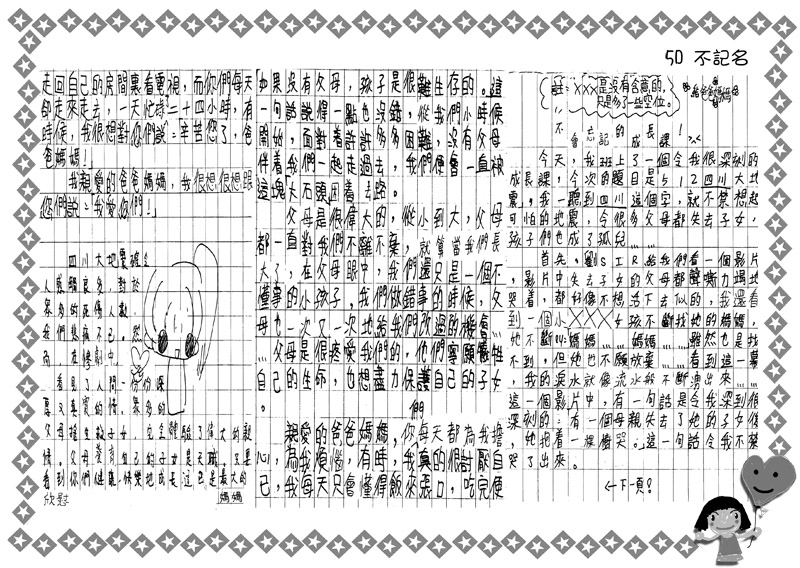 50 不記名
註：×××
是沒有含意的，
只是多了些空位。
給爸爸媽媽
不會忘記的成長課！
今天，我班上了一個令我很深刻的
成長課，今次的題目是512四川大地
震，我一聽到四川這個字，就不禁想起
可怕的地震，令很多父母都失去子女，
孩子們也成了孤兒……
首先，劉SIR給我們看一個影片
，影片中失去子女的父母都聲嘶力竭地
哭着，都好像不想活下去似的，我還看
到一個小×××女孩不斷找她的媽媽，
她不斷叫媽媽……雖然也是找
不到，但她也不願放棄……看到這一幕
，我的淚水就像流水般不斷湧出來……
這一個影片中，有一句話是令我深刻很
深刻的：有一個母親失去了她的子女後
，她抱着一棵樹哭。這一句話令我不禁
哭了出來。
←下一頁
如果沒有父母，孩子是很難生存的。這
一句話說得一點也沒錯，從我們小時候
開始，面對着許許多多困難，沒有父母
伴着我們一起走過去，我們便會一直被
這塊大石頭困着去路。
父母是很偉大的，從小到大，父母
都一直對我們不離不棄，就算當我們長
大了，在父母眼中，我們還只是一個不
懂事的小孩子。我們做錯事的時候，父
母也一次又一次地給我們改過的機會…
…父母是很疼愛我們的，他們寧願犧牲
自己的生命，也想盡力保護自己的子女
。
親愛的爸爸媽媽，你們每天都為我擔
心，為我煩惱，有時，我真的很討厭自
己，我每天只會懂得飯來張口，吃完便
走回自己的房間裏看電視，而你們每天
卻走來走去，一天忙時二十四小時，有
時候，我很想對你們說：辛苦您了，爸
爸媽媽！
我親愛的爸爸媽媽，我很想很想跟
您們說：「我愛您們！」
四川大地震確令
人感觸良多，對於
眾多的死傷人數
我們悲痛不已。然
而，在慘劇中，
看見了人間一份份深
厚又真實的情。眾多的
父母捨生救子女，完全體驗了偉大的親
情。父母愛育自己的子女是天職，只要
看到你們健康、快樂地成長這已是最大的
欣慰
媽媽